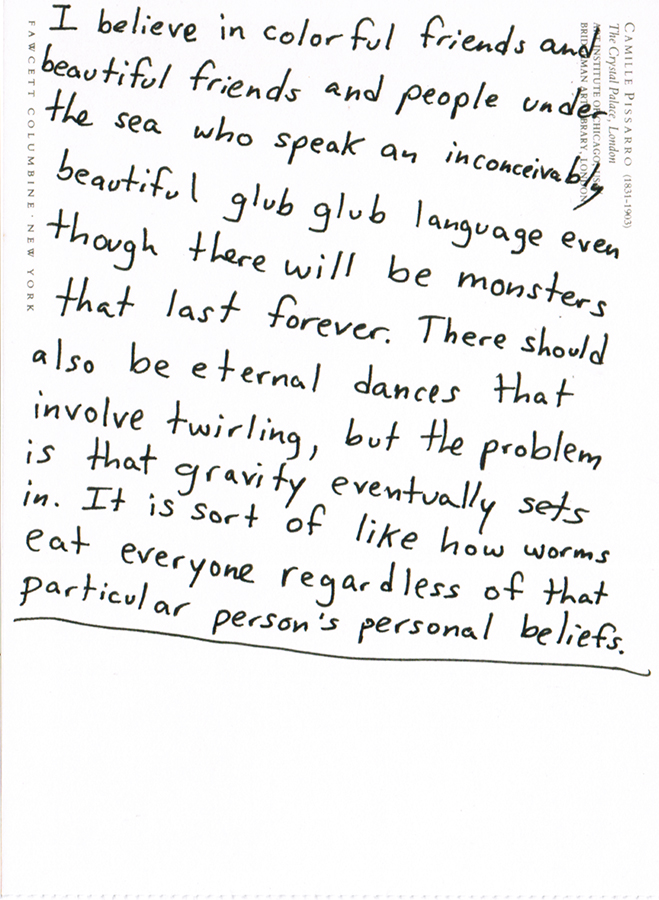 I believe in colorful friends and
beautiful friends and people under
the sea who speak an inconceivably
beautiful glub glub language even
though there will be monsters
that last forever. There should
also be eternal dances that
involve twirling, but the problem
is that gravity eventually sets
in. It is sort of like how worms
eat everyone regardless of that
particular person's personal beliefs.
CAMILLE PISSARRO (1831-1903)
The Crystal Palace, London
ART INSTITUTE OF CHICAGO, USA
BRIDGEMAN ART LIBRARY, LONDON
FAWCETT COLUMBINE · NEW YORK